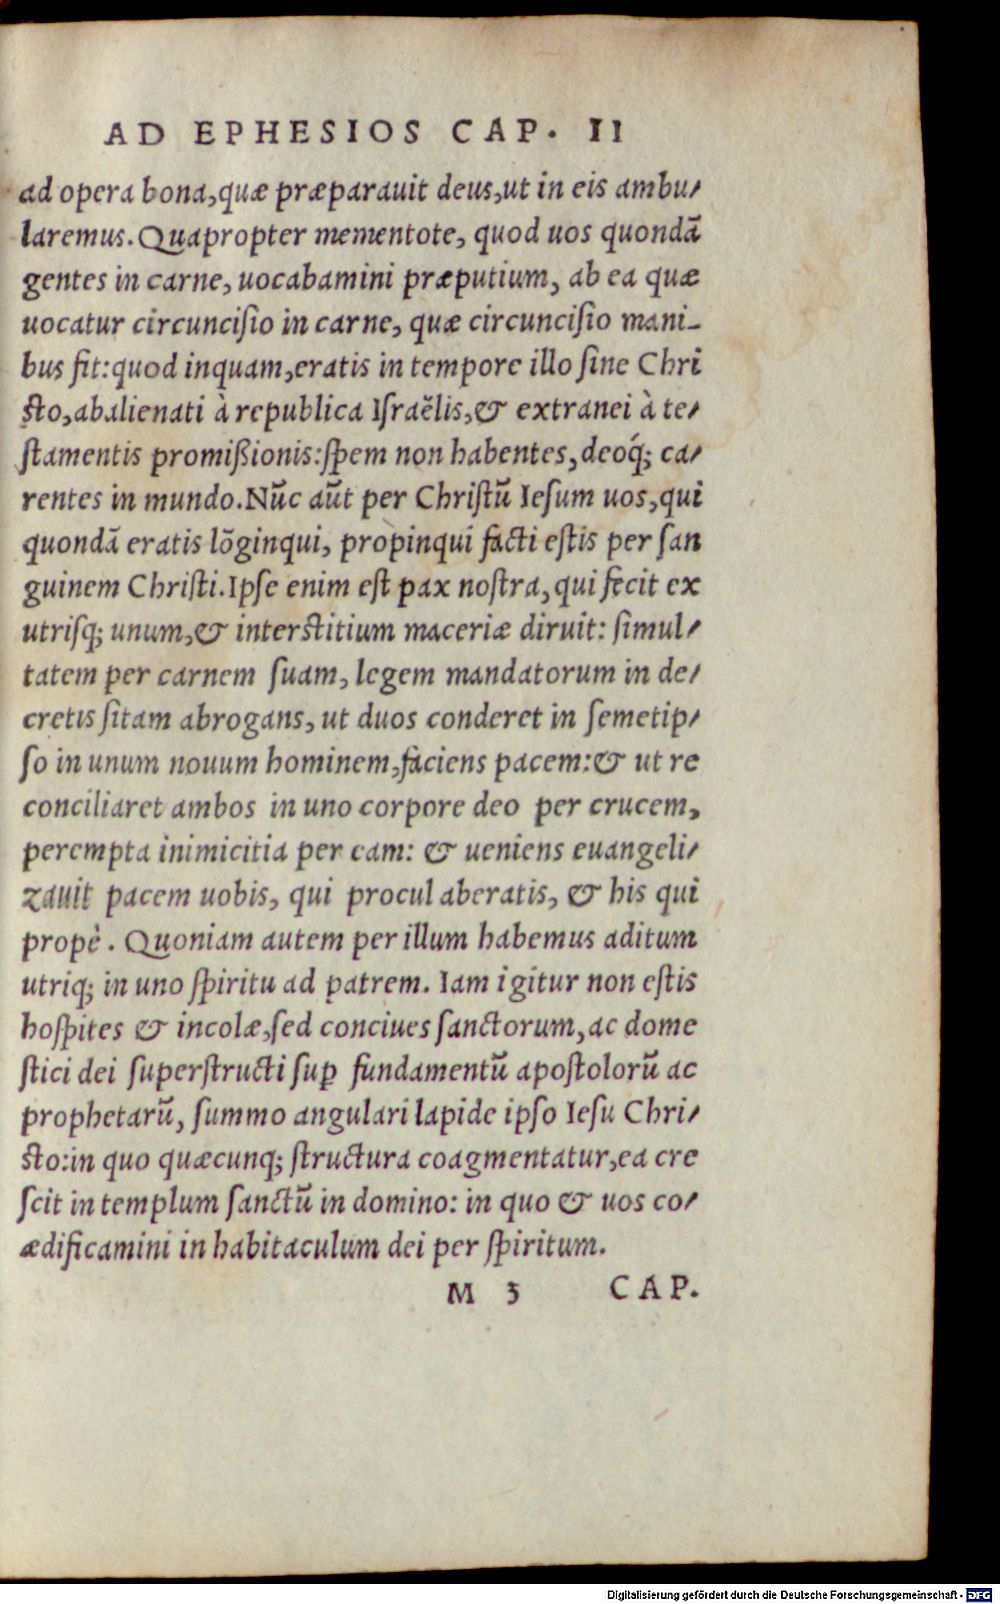 AD EPHESIOS CAP. II
ad opera bona,quæ præparauit deus,ut in eis ambu/
laremus.Quapropter mementote, quod uos quondã
gentes in carne, uocabamini præputium, ab ea quæ
uocatur circuncisio in carne, quæ circuncisio mani-
bus fit:quod inquam,eratis in tempore illo sine Chri
sto,abalienati à republica Israẽlis,& extranei à te/
stamentis promißionis:spem non habentes,deoq́; ca/
rentes in mundo.Nũc aũt per Christũ Iesum uos,qui
quondã eratis lõginqui, propinqui facti estis per san
guinem Christi.Ipse enim est pax nostra,qui fecit ex
utrisq; unum,& interstitium maceriæ diruit: simul/
tatem per carnem suam, legem mandatorum in de/
cretis sitam abrogans, ut duos conderet in semetip/
so in unum nouum hominem,faciens pacem:& ut re
conciliaret ambos in uno corpore deo per crucem,
perempta inimicitia per eam: & ueniens euangeli/
zauit pacem uobis, qui procul aberatis, & his qui
propè . Quoniam autem per illum habemus aditum
utriq; in uno spiritu ad patrem. Iam igitur non estis
hospites & incolæ,sed conciues sanctorum,ac dome
stici dei superstructi suꝑ fundamentũ apostolorũ ac
prophetarũ, summo angulari lapide ipso Iesu Chri/
sto:in quo quæcunq; structura coagmentatur,ea cre
scit in templum sanctũ in domino: in quo & uos co/
ædificamini in habitaculum dei per spiritum.
M 3 CAP.
Digitalisierung gefördert durch die Deutsche Forschungsgemeinschaft - DFG